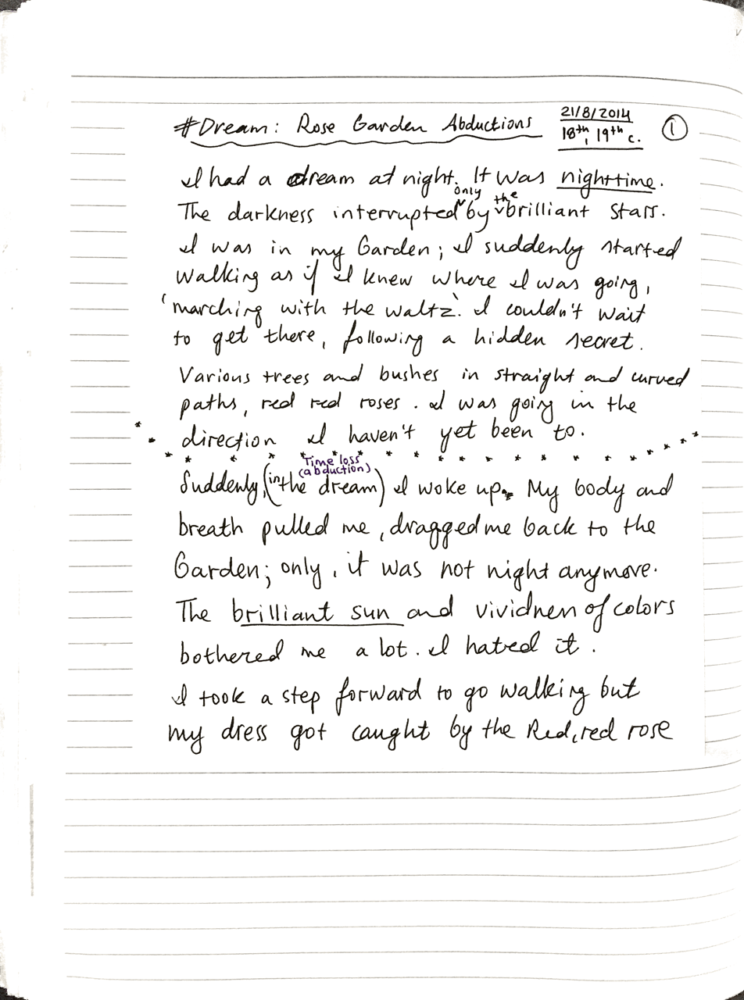 #Dream: Rose Garden Abductions 21/8/2014 ①
18th, 19th c.
I had a dream at night. It was nighttime.
The darkness interrupted only by the brilliant stars.
I was in my Garden; I suddenly started
walking as if I knew where I was going,
'marching with the waltz'. I couldn't wait
to get there, following a hidden secret.
Various trees and bushes in straight and curved
paths, red red roses. I was going in the
direction I haven't yet been to.
Time loss
(abduction)
Suddenly, (in the dream) I woke up. My body and
breath pulled me, dragged me back to the
Garden; only, it was not night anymore.
The brilliant sun and vividness of colors
bothered me a lot. I hated it.
I took a step forward to go walking but
my dress got caught by the Red, red rose